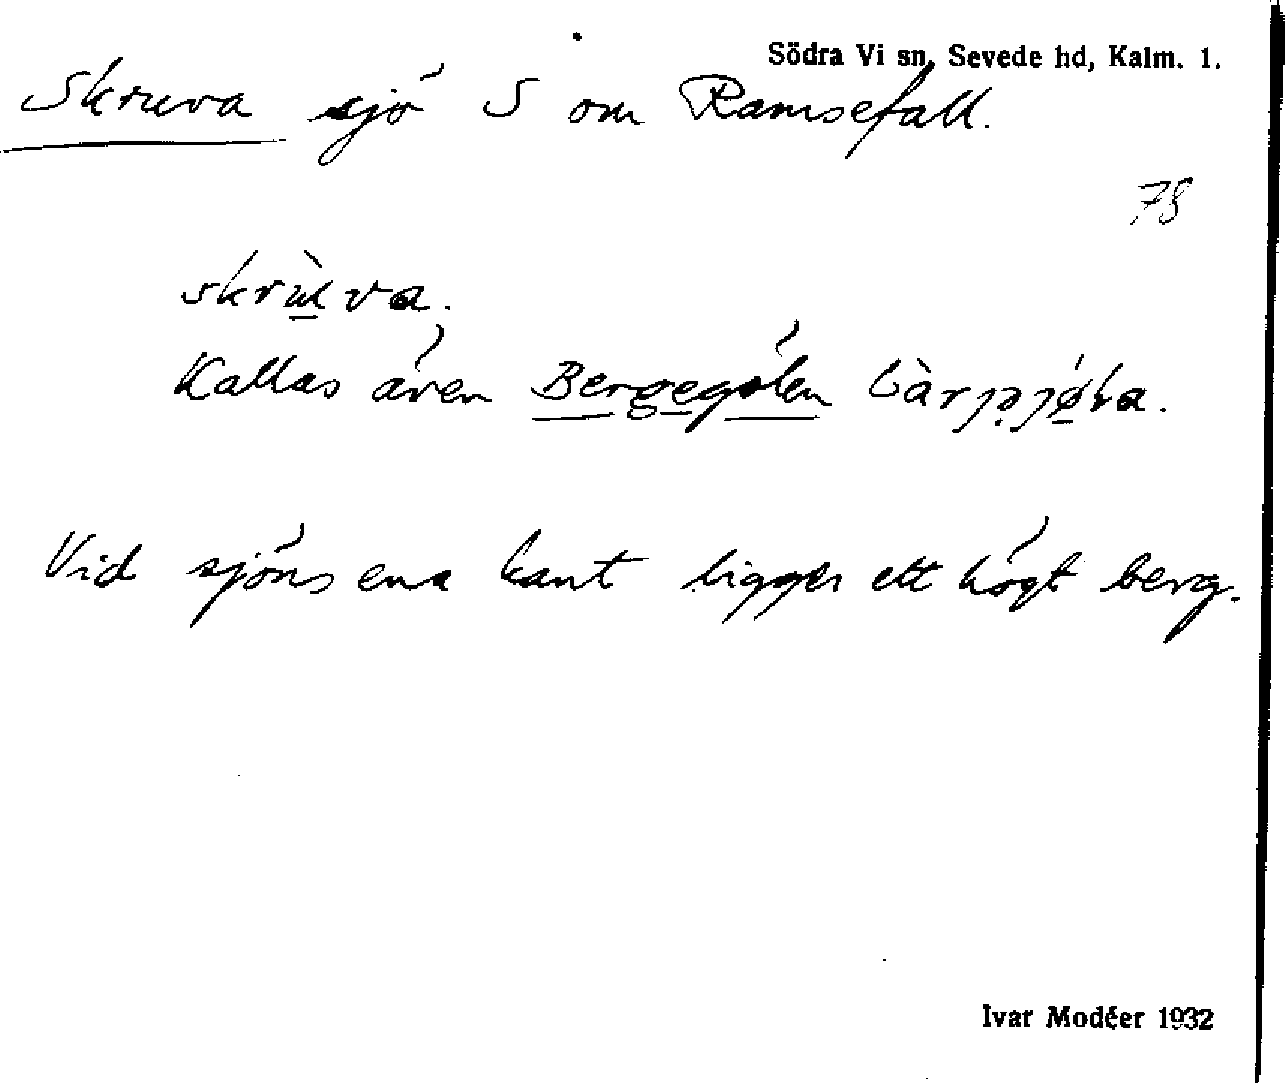 Södra Vi sn, Sevede hd, Kalm. l.
Skruva sjö S om Ramsefall.
78
skrùva.
Kallas även Bergegölen
Vid sjöns ena kant ligger ett högt berg.
Ivar Modéer 1932